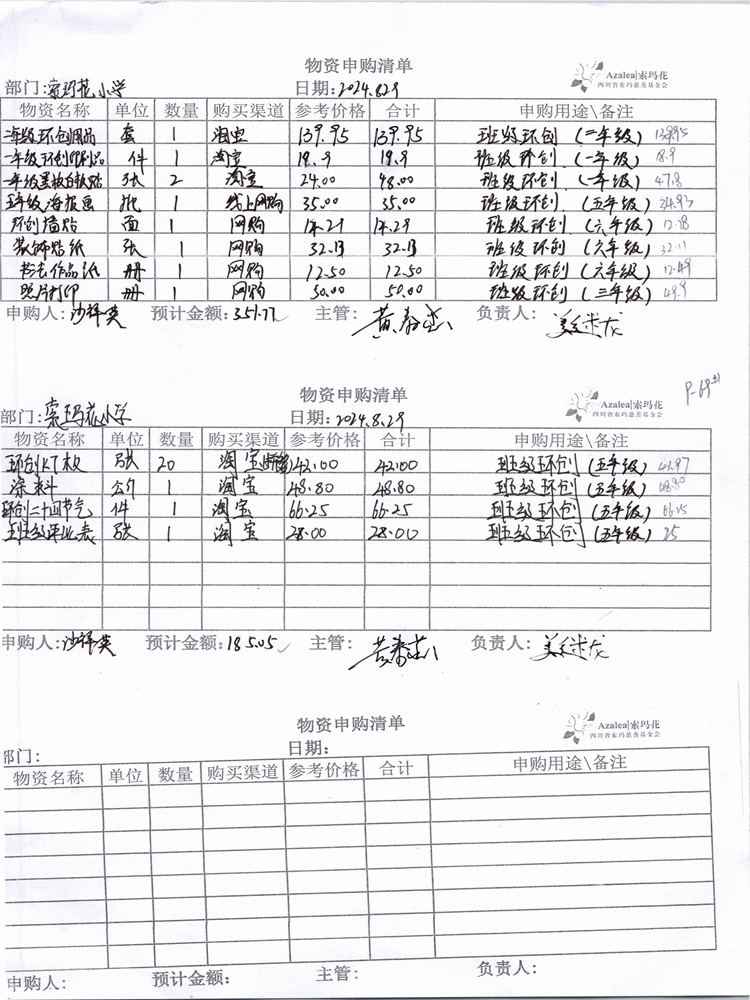 物资申购清单
Azalea|索玛花
四川省索玛慈善基金会
部门:索玛花小学 日期:2024.8.29
物资名称 单位 数量 购买渠道 参考价格 合计 申购用途\备注
二年级环创用品 套 1 淘宝 139.95 139.95 班级环创(二年级)
一年级环创印刷品 件 1 淘宝 19.9 19.9 班级环创(一年级)
张 2 淘宝 24.00 48.00 班级环创(一年级) 47.8
五年级海报画 批 1 线上网购 35.00 35.00 班级环创(五年级) 34.93
环创墙贴 面 1 网购 14.29 14.29 班级环创(六年级)
装饰贴纸 张 1 网购 32.13 32.13 班级环创(六年级)
书法作品纸 册 1 网购 12.50 12.50 班级环创(六年级) 12.49
照片打印 册 1 网购 50.00 50.00 班级环创(三年级) 49.9
申购人: 预计金额:351.77 主管: 负责人:
物资申购清单
Azalea|索玛花
四川省索玛慈善基金会
部门:索玛花小学 日期:2024.8.29
物资名称 单位 数量 购买渠道 参考价格 合计 申购用途\备注
环创KT板 张 20 淘宝 42.00 42.00 班级环创(五年级)
涂料 1 淘宝 48.80 48.80 班级环创(五年级)
环创二十四节气 件 1 淘宝 66.25 66.25 班级环创(五年级)
班级评比表 张 1 淘宝 28.00 28.00 班级环创(五年级) 25
申购人: 预计金额:185.05 主管: 负责人:
物资申购清单
Azalea|索玛花
四川省索玛慈善基金会
部门: 日期:
物资名称 单位 数量 购买渠道 参考价格 合计 申购用途\备注
申购人: 预计金额: 主管: 负责人: